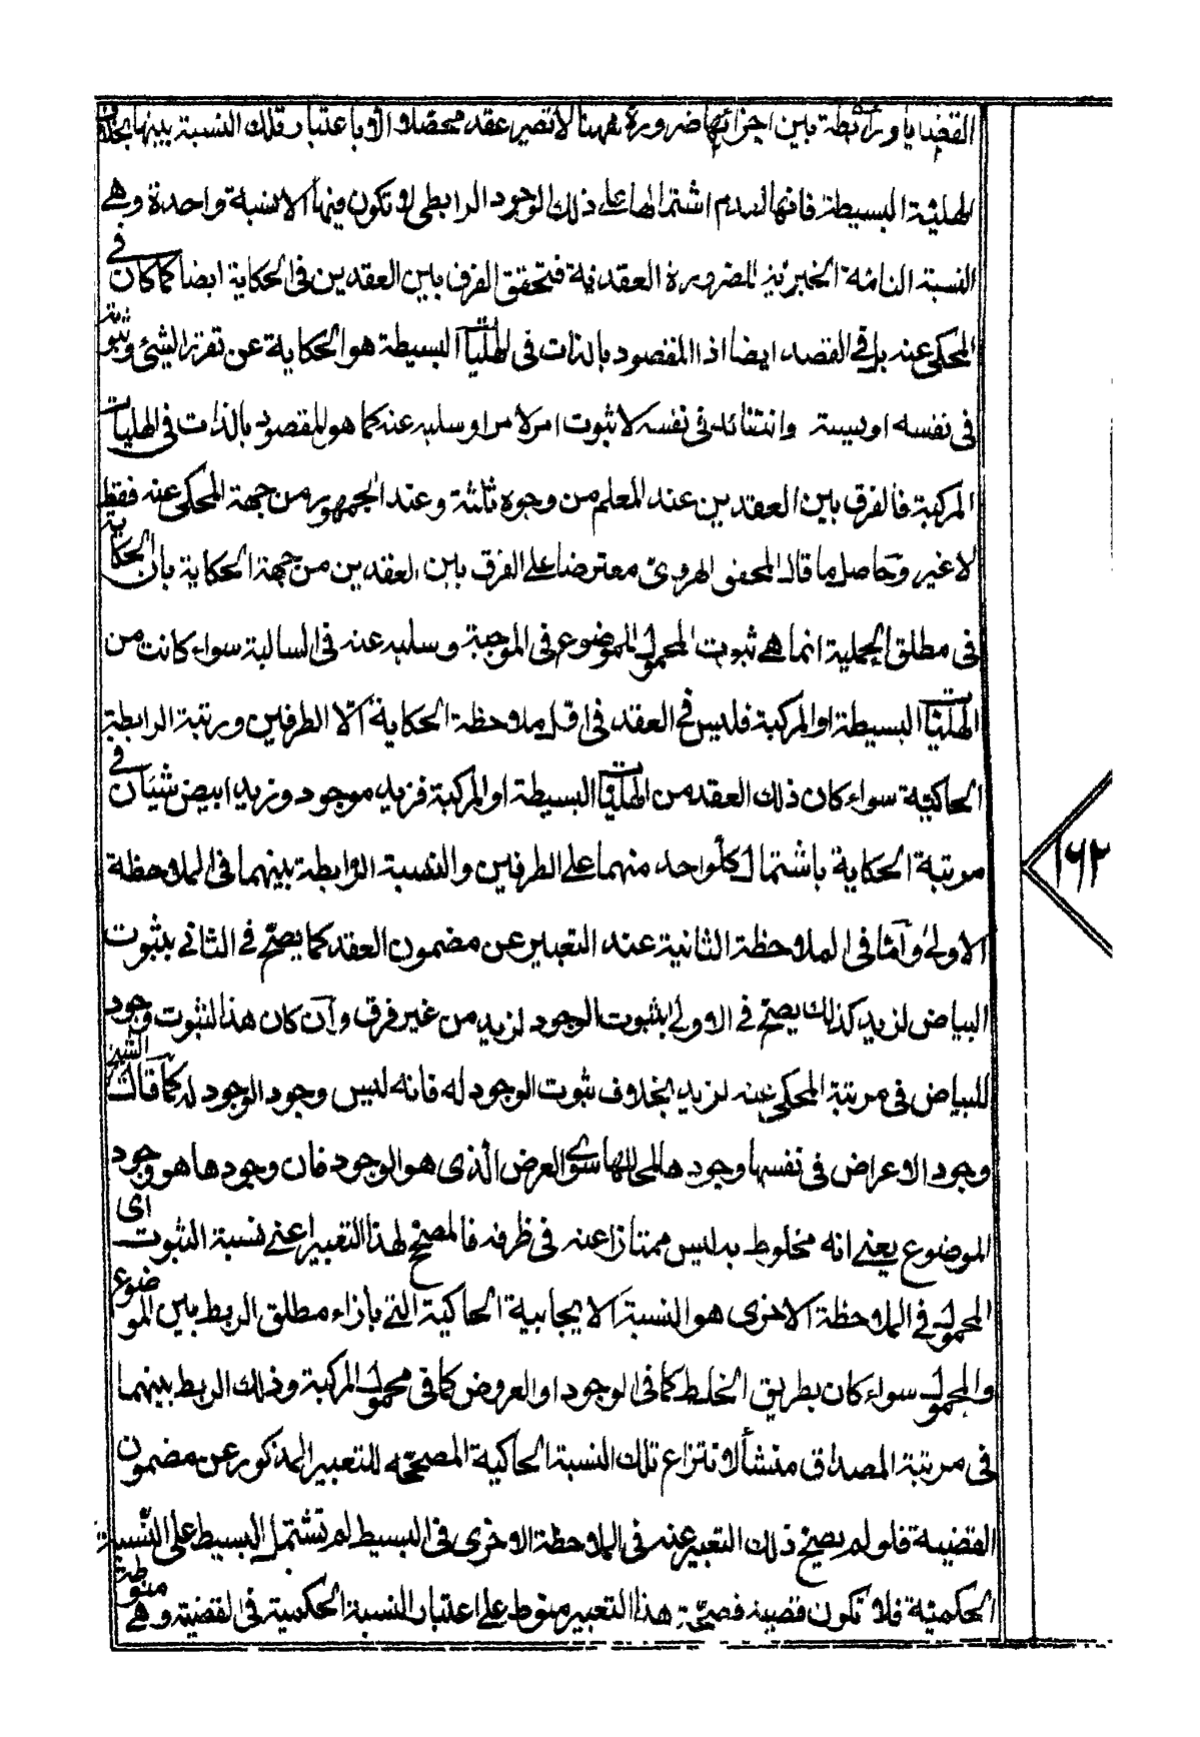 القضايا ورابطة بين اجزائها ضرورة مفهمنا لا تصير عقد محصلا الا باعتبار تلك النسبة بينها بخلاف
الهلية البسيطة فانها لعدم اشتمالها على ذلك الوجود الرابطى لا تكون فيها الا نسبة واحدة وهى
النسبة التامة الخبرية لضرورة العقدية فتحقق الفرق بين العقدين فى الحكاية ايضا كما كان فى
المحكى عنه بل فى القصد ايضا اذ المقصود بالذات فى الهليات البسيطة هو الحكاية عن تقرر الشئ وثبوته
فى نفسه او ليسيته وانتفائه فى نفسه لا ثبوت امر لامر او سلبه عنه كما هو المقصود بالذات فى الهليات
المركبة فالفرق بين العقدين عند المعلم من وجوه ثلثة وعند الجمهور من جهة المحكى عنه فقط
لا غير وحاصل ما قال المحقق الهروى معترضا على الفرق بين العقدين من جهة الحكاية بان الحكاية
فى مطلق الحملية انما هى ثبوت المحمول للموضوع فى الموجبة وسلبه عنه فى السالبة سواء كانت من
الهليات البسيطة او المركبة فليس فى العقد فى اول ملاحظة الحكاية الا الطرفين ورتبة الرابطة
الحاكية سواء كان ذلك العقد من الهليات البسيطة او المركبة فزيد موجود وزيد ابيض شيئان فى
مرتبة الحكاية باشتمال كل واحد منهما على الطرفين والنسبة الرابطة بينهما فى الملاحظة
الاولى وأما فى الملاحظة الثانية عند التعبير عن مضمون العقد كما يصح فى الثانى بثبوت
البياض لزيد كذلك يصح فى الاولى بثبوت الوجود لزيد من غير فرق وآن كان هذا الثبوت وجود
للبياض فى مرتبة المحكى عنه لزيد بخلاف ثبوت الوجود له فانه ليس وجود الوجود له كما قال الشيخ
وجود الاعراض فى نفسها وجودها لمحالها سوى العرض الذى هو الوجود فان وجودها هو وجود
الموضوع يعنى انه مخلوط به ليس ممتازا عنه فى ظرفه فالمصحح لهذا التعبير اعنى نسبة الثبوت اى
المحمول فى الملاحظة الاخرى هو النسبة الايجابية الحاكية التى بازاء مطلق الربط بين الموضوع
والمحمول سواء كان بطريق الخلط كما فى الوجود او العروض كما فى محمول المركبة وذلك الربط بينهما
فى مرتبة المصداق منشأ لانتزاع تلك النسبة الحاكية المصححة للتعبير المذكور عن مضمون
القضية فلو لم يصح ذلك التعبير عنه فى الملاحظة الاخرى فى البسيط لم تشتمل البسيط على النسبة
الحكمية فلا تكون قضية فصحة هذا التعبير منوط على اعتبار النسبة الحكمية فى القضية وهى منوطة
١٦٢